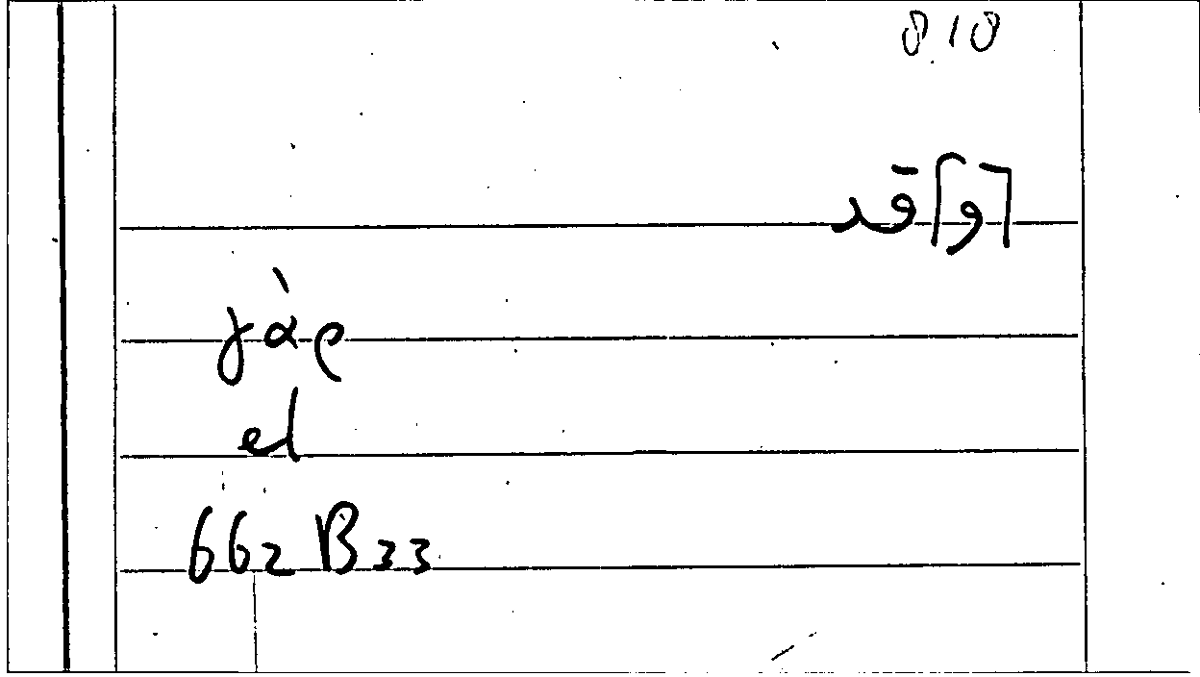 818
⌈و⌉قد
γὰρ
el
662B33